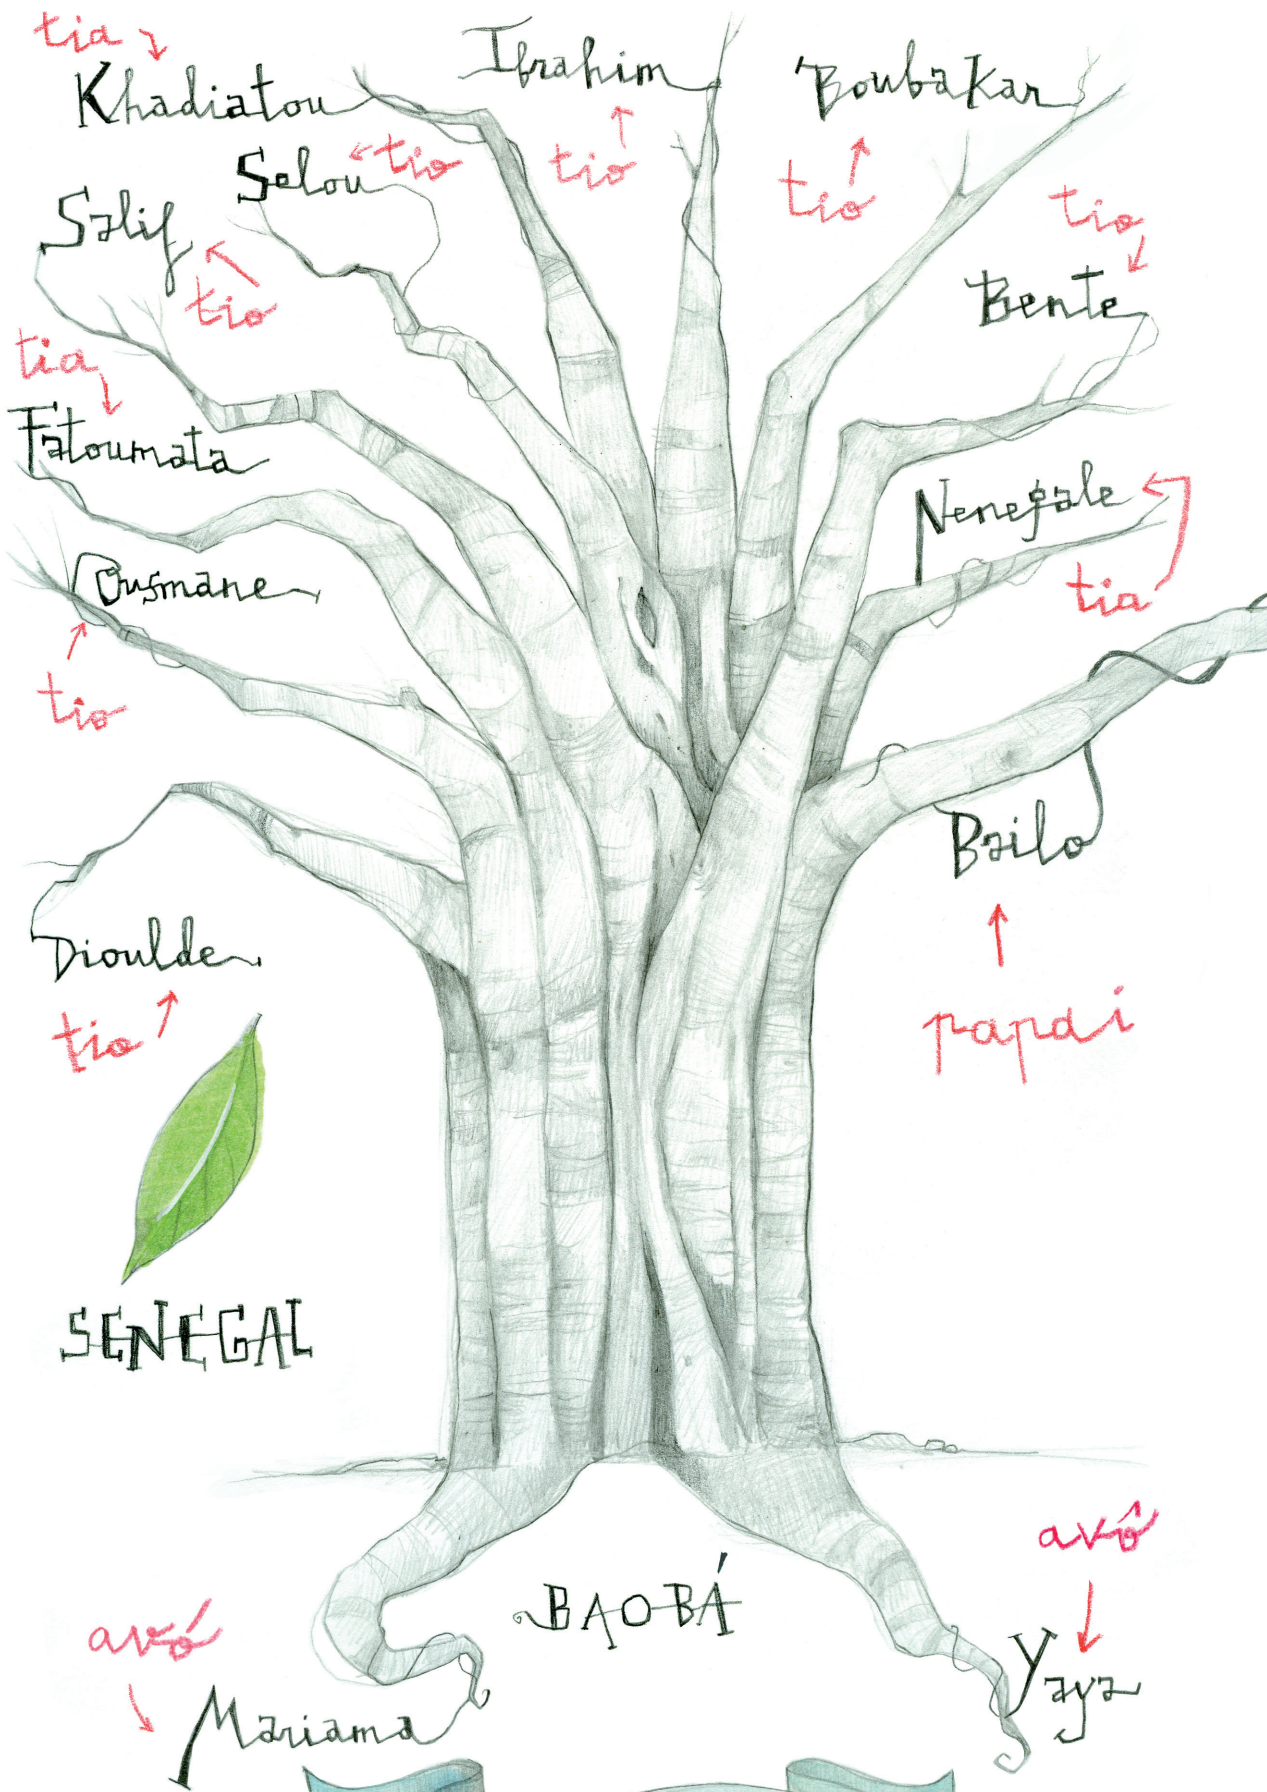 tia
Khadiatou
Ibrahim
tio
Boubakar
tio
Selou
tio
Salif
tio
tio
Bente
tia
Fatoumata
Nenegale
tia
Ousmane
tio
Bailo
papai
Dioulde
tio
SENEGAL
BAOBÁ
avó
Mariama
avô
Yaya